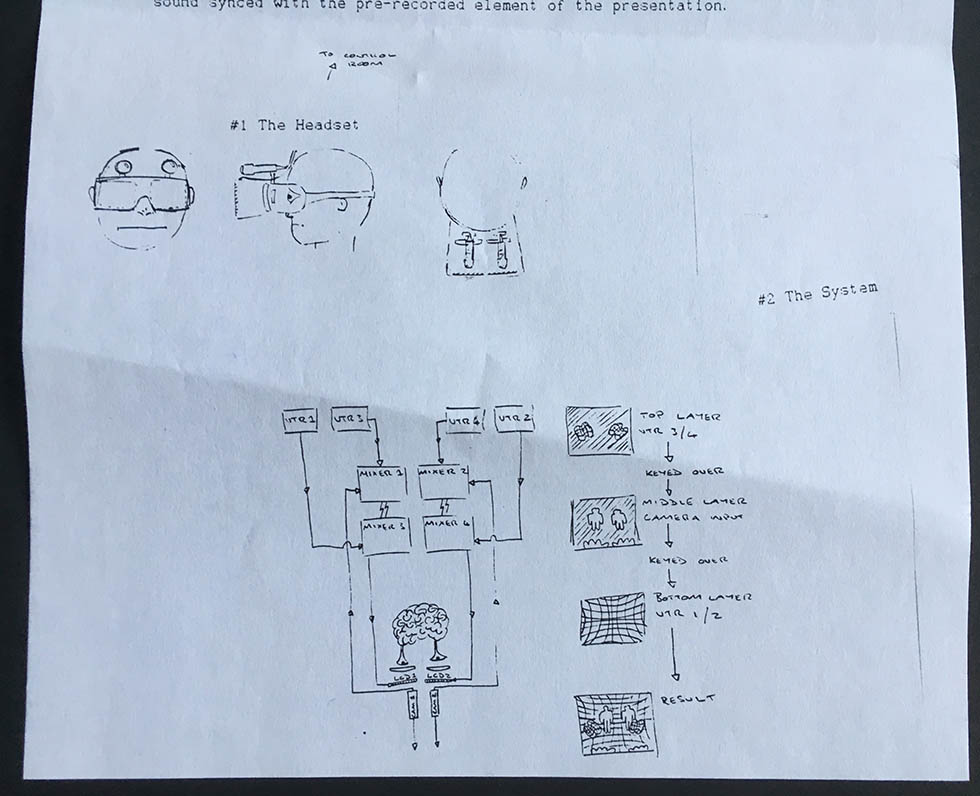 sound synced with the pre-recorded element of the presentation.
TO CONTROL
ROOM
#1 The Headset
#2 The System
VTR 1
VTR 3
VTR 4
VTR 2
MIXER 1
MIXER 2
MIXER 3
MIXER 4
LCD1
LCD2
CAM 1
CAM 2
TOP LAYER
VTR 3/4
KEYED OVER
MIDDLE LAYER
CAMERA INPUT
KEYED OVER
BOTTOM LAYER
VTR 1/2
RESULT